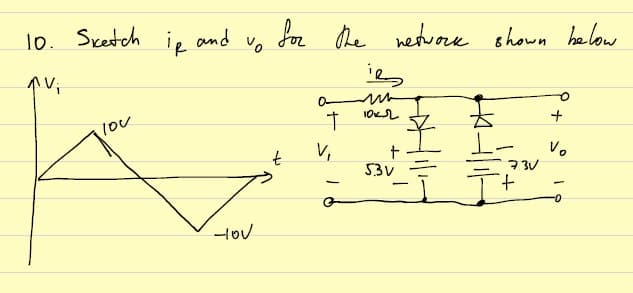 10. Sketch iR and vo for the network shown below
Vi
10V
t
-10V
iR
10kΩ
+
Vi
-
+
53V
-
-
73V
+
+
Vo
-